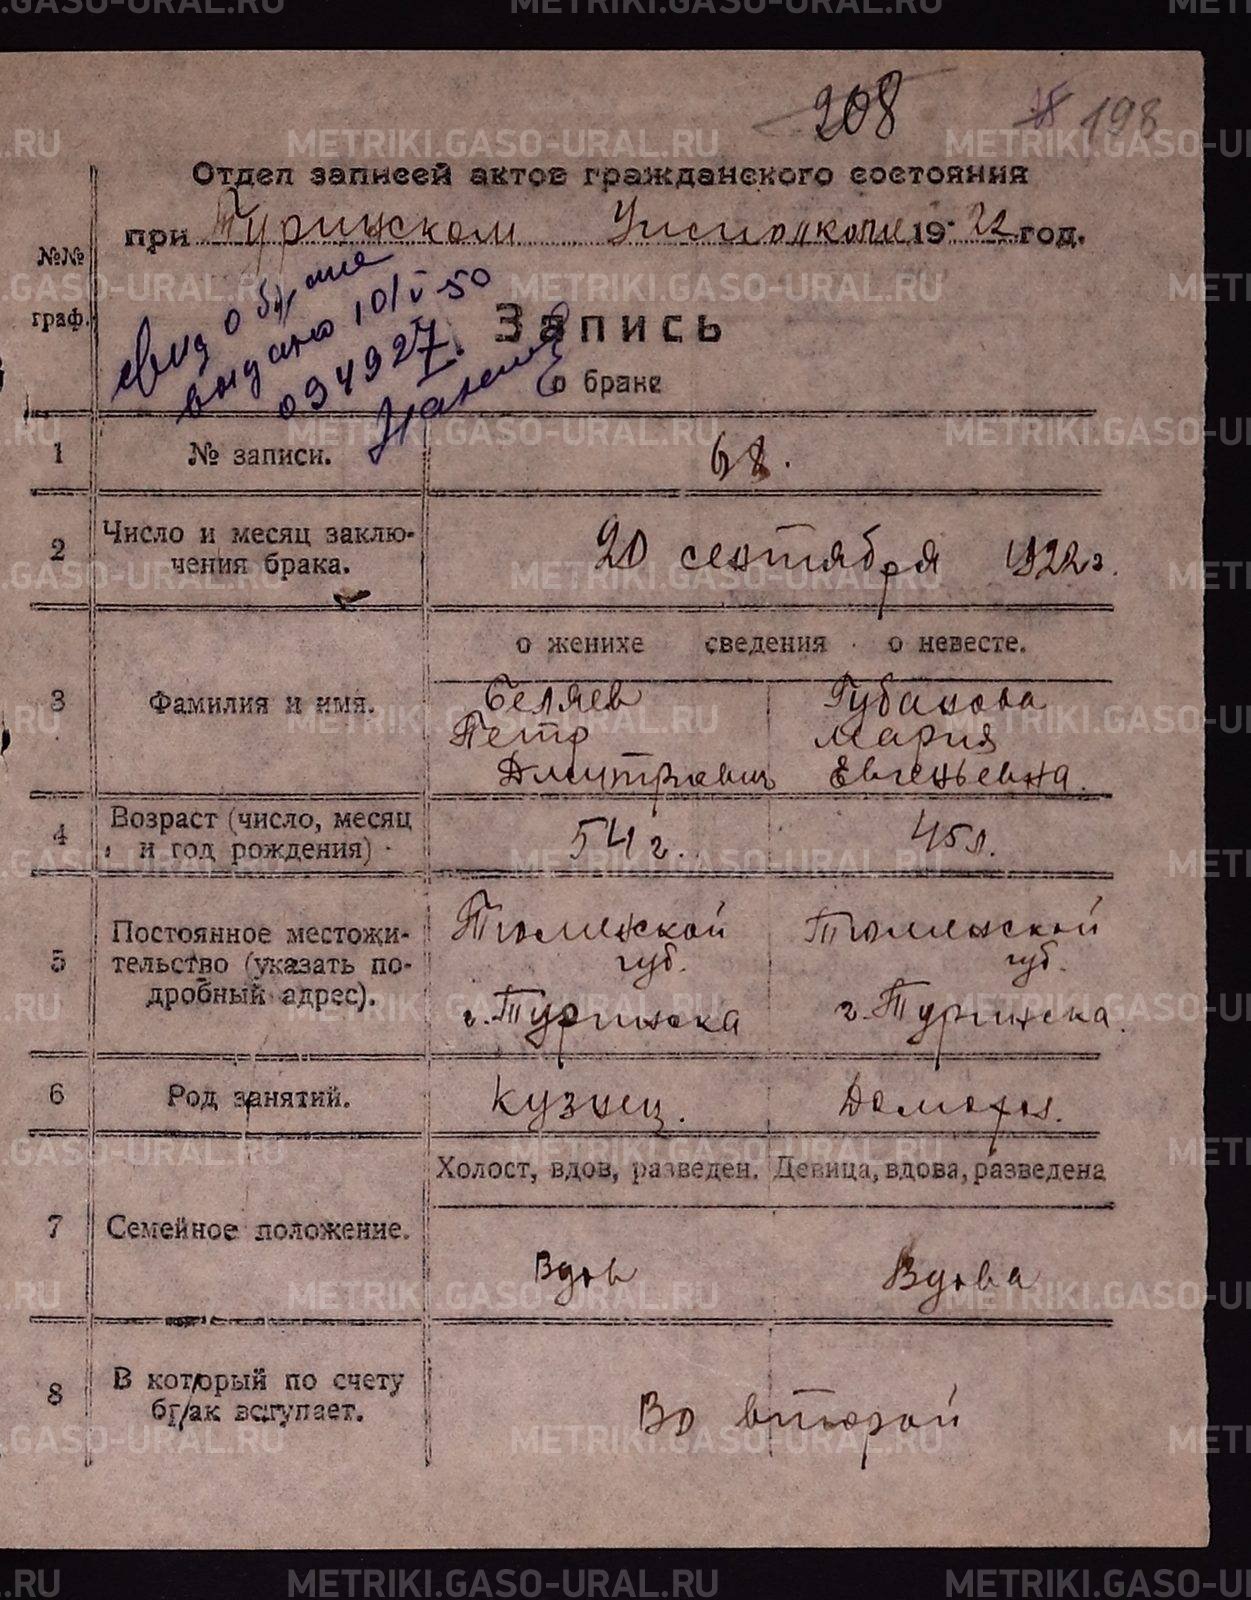 208
198
Отдел записей актов гражданского состояния
при Туринском Уисполкоме 1922 год.
№№
граф.
свид о браке
выдано 10/V-50
094927
Запись
о браке
1 № записи. 68.
2 Число и месяц заклю-
чения брака.
20 сентября 1922 г.
о женихе сведения о невесте.
3 Фамилия и имя.
Беляев Губанова
Петр Мария
Дмитриевич Евгеньевна.
4 Возраст (число, месяц
и год рождения)
54 г. 45 л.
5 Постоянное местожи-
тельство (указать по-
дробный адрес).
Тюменской Тюменской
губ. губ.
г. Туринска г. Туринска.
6 Род занятий. Кузнец. Домохоз.
Холост, вдов, разведен. Девица, вдова, разведена
7 Семейное положение.
Вдов Вдова
8 В который по счету
брак вступает.
Во второй
METRIKI.GASO-URAL.RU